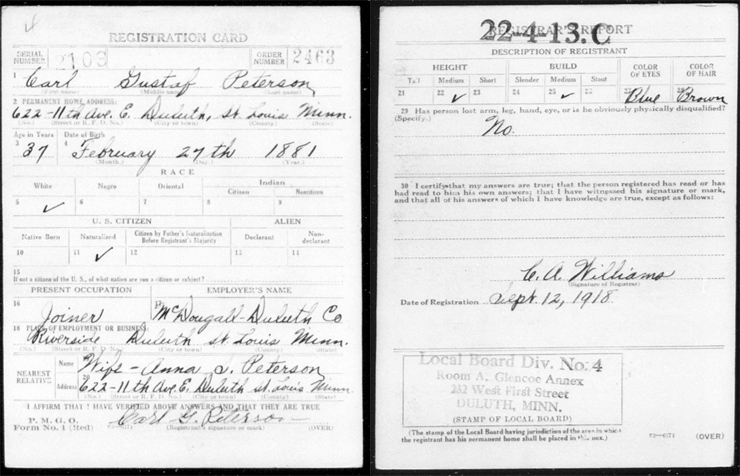 REGISTRATION CARD
SERIAL NUMBER 2103 ORDER NUMBER 2463
1 Carl Gustaf Peterson
(First name) (Middle name) (Last name)
2 PERMANENT HOME ADDRESS:
622-11th Ave. E. Duluth, St. Louis Minn.
(No.) (Street or R. F. D. No.) (City or town) (County) (State)
Age in Years Date of Birth
3 37 4 February 27th 1881
(Month.) (Day.) (Year.)
RACE
White Negro Oriental Indian
Citizen Noncitizen
5 ✓ 6 7 8 9
U. S. CITIZEN ALIEN
Native Born Naturalized Citizen by Father's Naturalization Before Registrant's Majority Declarant Non-declarant
10 11 ✓ 12 13 14
15
If not a citizen of the U. S., of what nation are you a citizen or subject?
PRESENT OCCUPATION EMPLOYER'S NAME
16 Joiner 17 McDougall-Duluth Co
18 PLACE OF EMPLOYMENT OR BUSINESS:
Riverside Duluth St Louis Minn.
(No.) (Street or R. F. D. No.) (City or town) (County) (State)
NEAREST RELATIVE Name 19 Wife - Anna S. Peterson
Address 20 622-11th Ave. E. Duluth St. Louis Minn.
(No.) (Street or R. F. D. No.) (City or town) (County) (State)
I AFFIRM THAT I HAVE VERIFIED ABOVE ANSWERS AND THAT THEY ARE TRUE
P. M. G. O.
Form No. 1 (Red) Carl G. Peterson
(Registrant's signature or mark) (OVER)
22-4-13.C
REGISTRAR'S REPORT
DESCRIPTION OF REGISTRANT
HEIGHT BUILD COLOR OF EYES COLOR OF HAIR
Tall Medium Short Slender Medium Stout
21 22 ✓ 23 24 25 ✓ 26 27 Blue 28 Brown
29 Has person lost arm, leg, hand, eye, or is he obviously physically disqualified?
(Specify.) No.
30 I certify that my answers are true; that the person registered has read or has
had read to him his own answers; that I have witnessed his signature or mark,
and that all of his answers of which I have knowledge are true, except as follows:
C. A. Williams
(Signature of Registrar)
Date of Registration Sept. 12, 1918
Local Board Div. No. 4
Room A, Glencoe Annex
232 West First Street
DULUTH, MINN.
(STAMP OF LOCAL BOARD)
(The stamp of the Local Board having jurisdiction of the area in which
the registrant has his permanent home shall be placed in this box.)
(OVER)